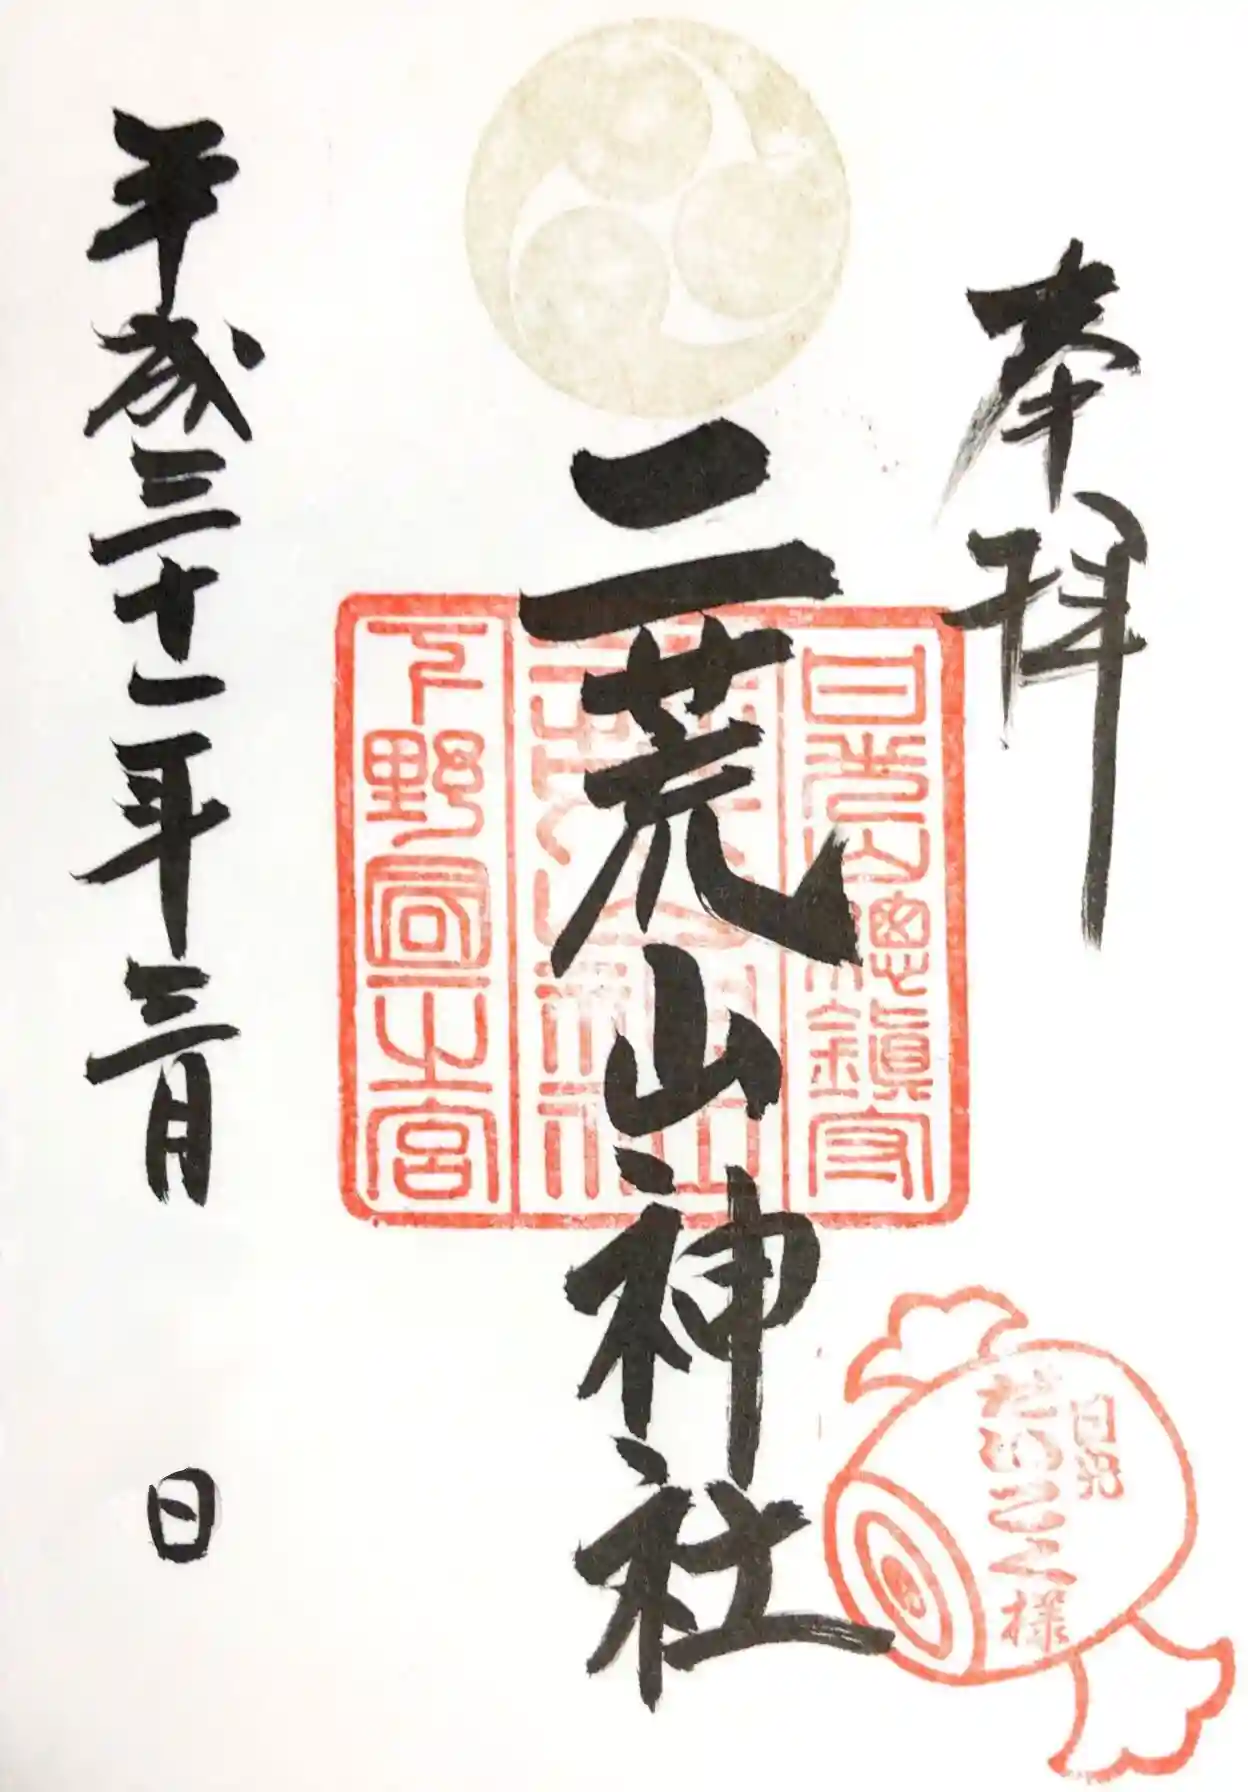 奉拝
日光山總鎮守
二荒山神社
二荒山神社
下野國一之宮
平成三十一年三月 日
日光
だいこく様